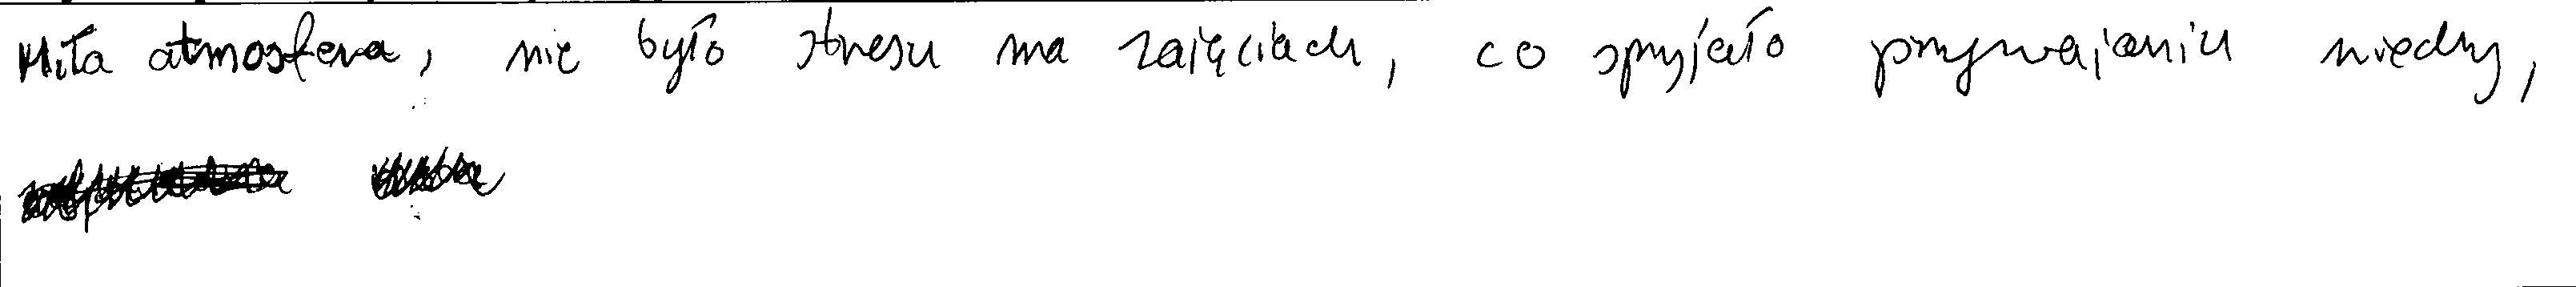 Miła atmosfera, nie było stresu na zajęciach, co sprzyjało przyswajaniu wiedzy,